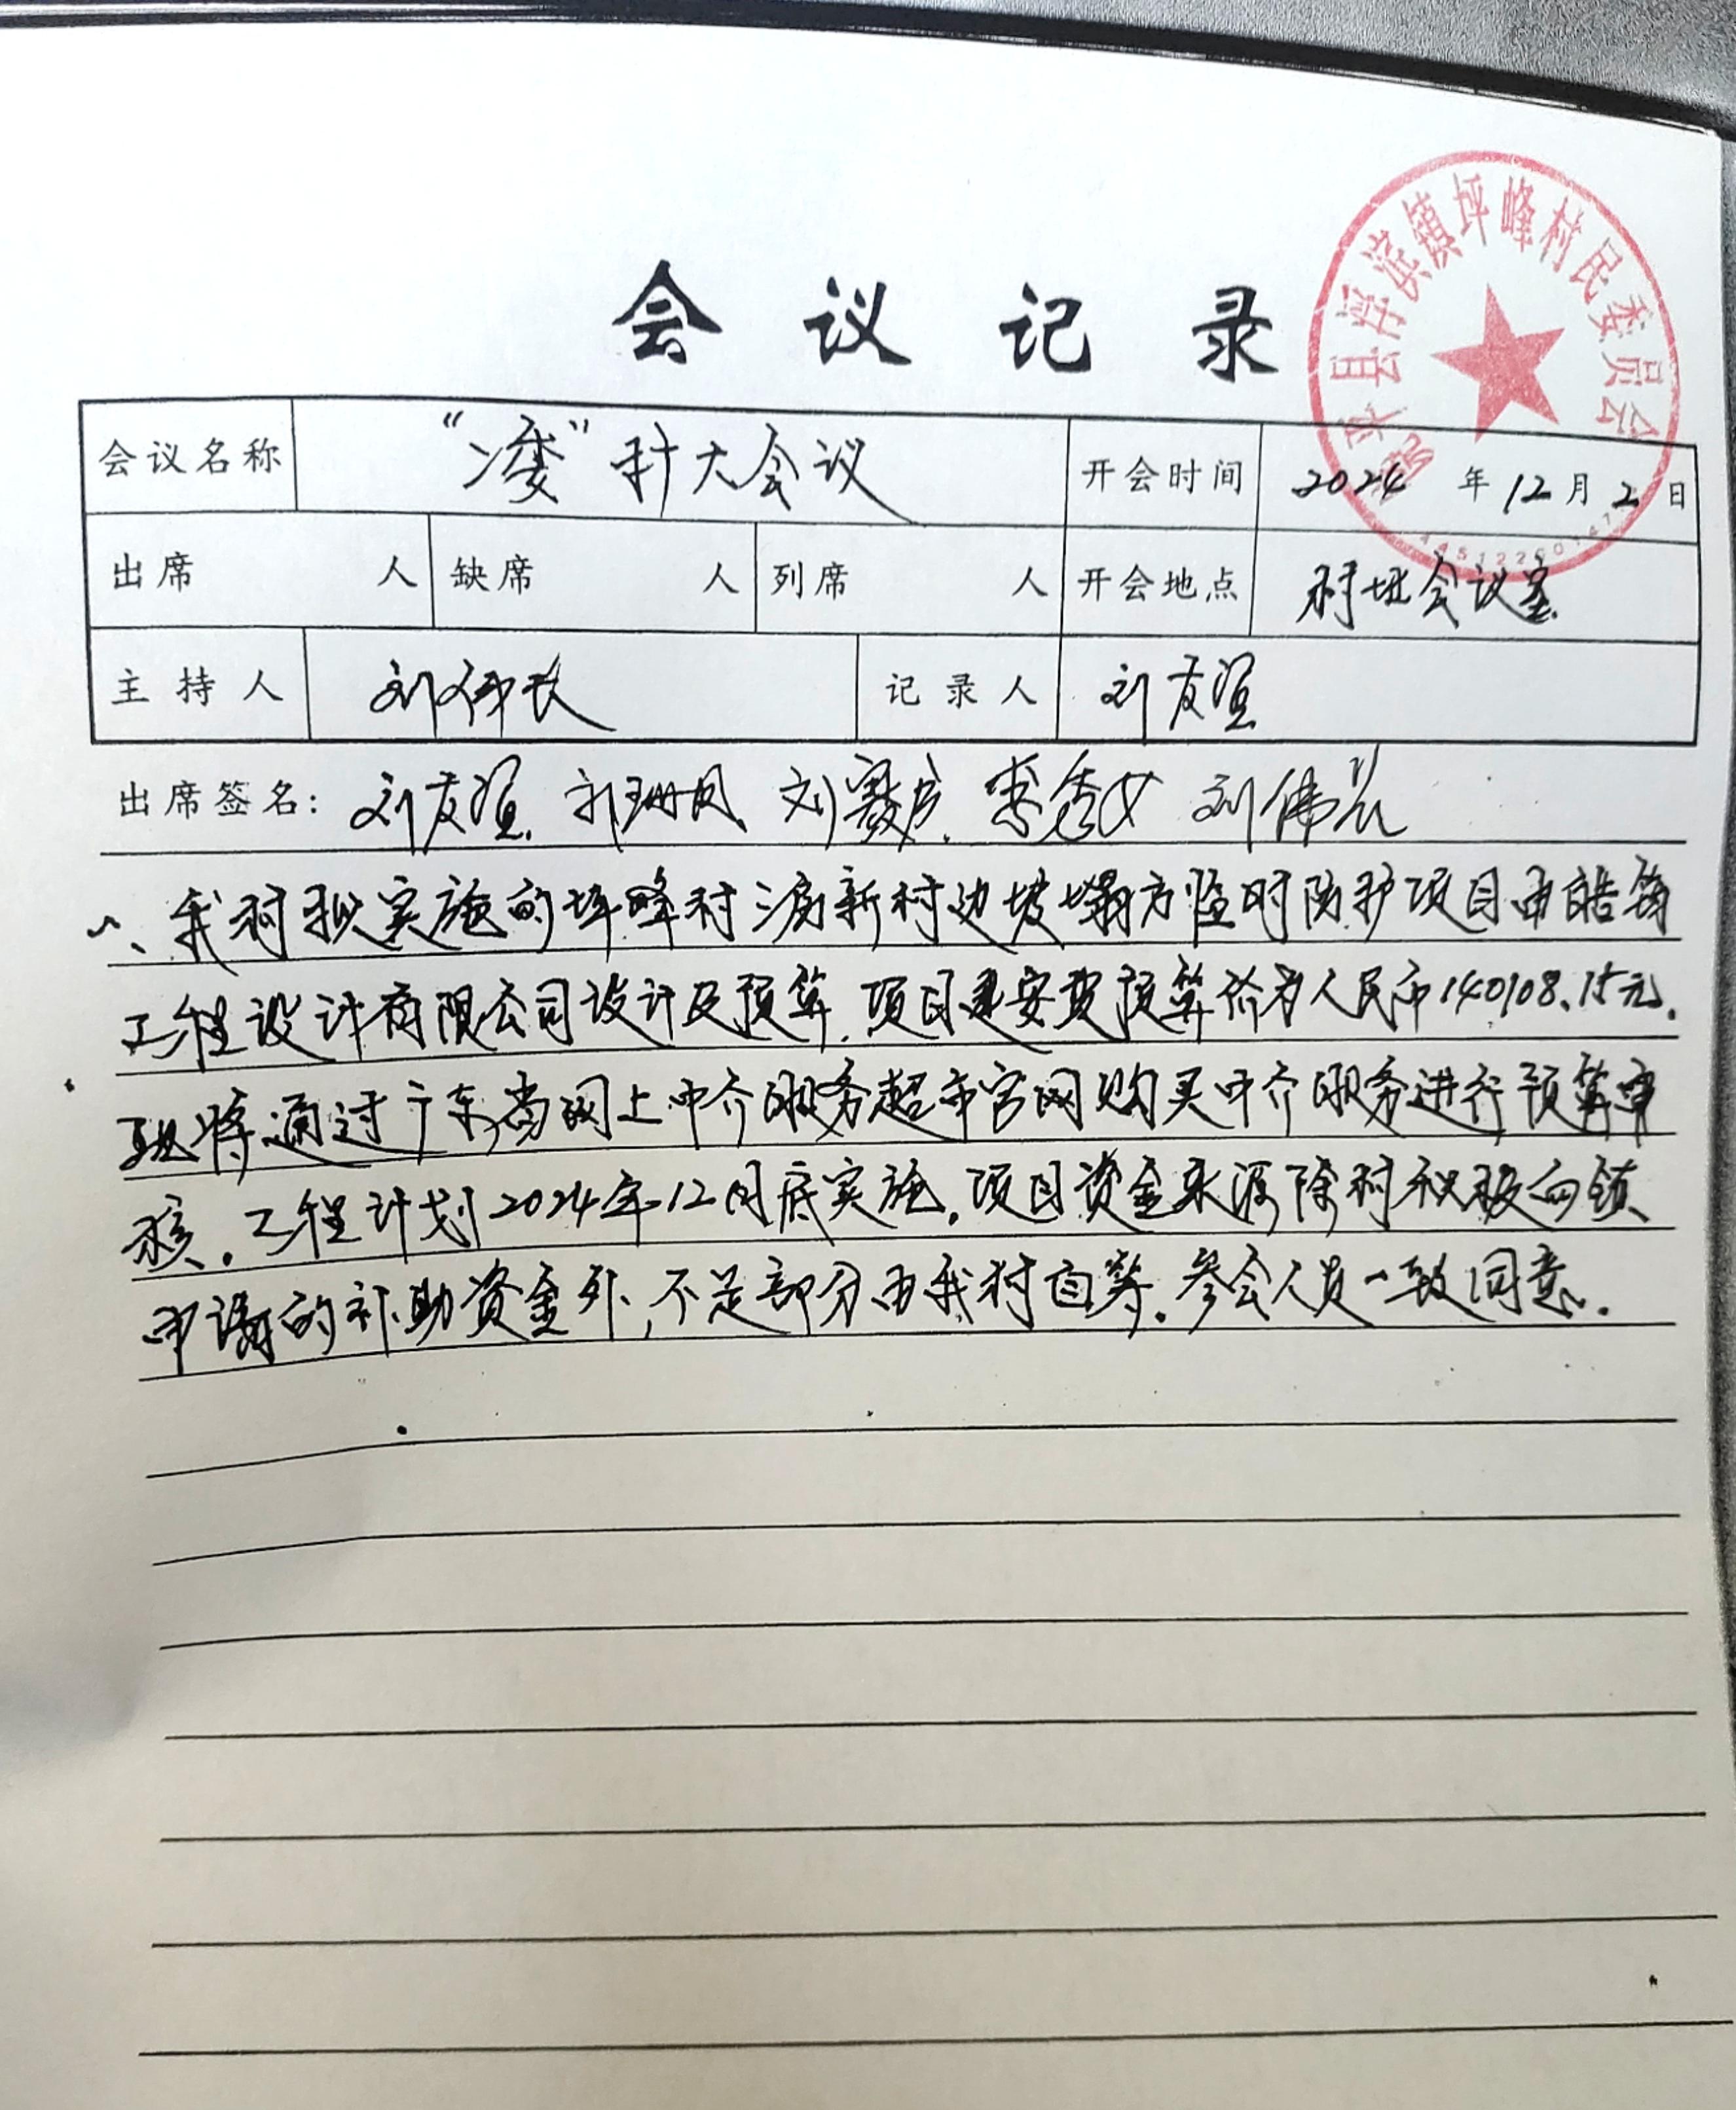 饶平县浮滨镇坪峰村民委员会
会议记录
会议名称 “两委”扩大会议 开会时间 2024年12月2日
出席 人 缺席 人 列席 人 开会地点 村址会议室
主持人 刘伟 记录人 刘友
出席签名: 刘友 刘 李秀 刘伟
一、我村拟实施的坪峰村 新村边坡塌方临时防护项目由皓
工程设计有限公司设计及预算,项目建安费预算价为人民币140108.15元.
现将通过广东省网上中介服务超市官网购买中介服务进行预算审
核。工程计划2024年12月底实施,项目资金来源除村积极向镇
申请的补助资金外,不足部分由我村自筹。参会人员一致同意.